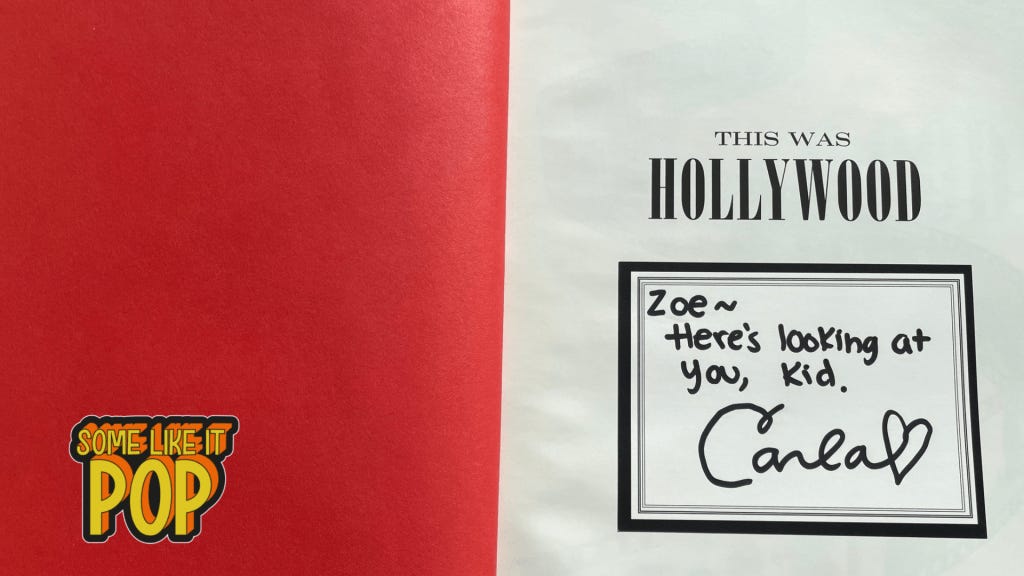 SOME LIKE IT
POP
THIS WAS
HOLLYWOOD
Zoe~
Here's looking at
you, kid.
Carla♡